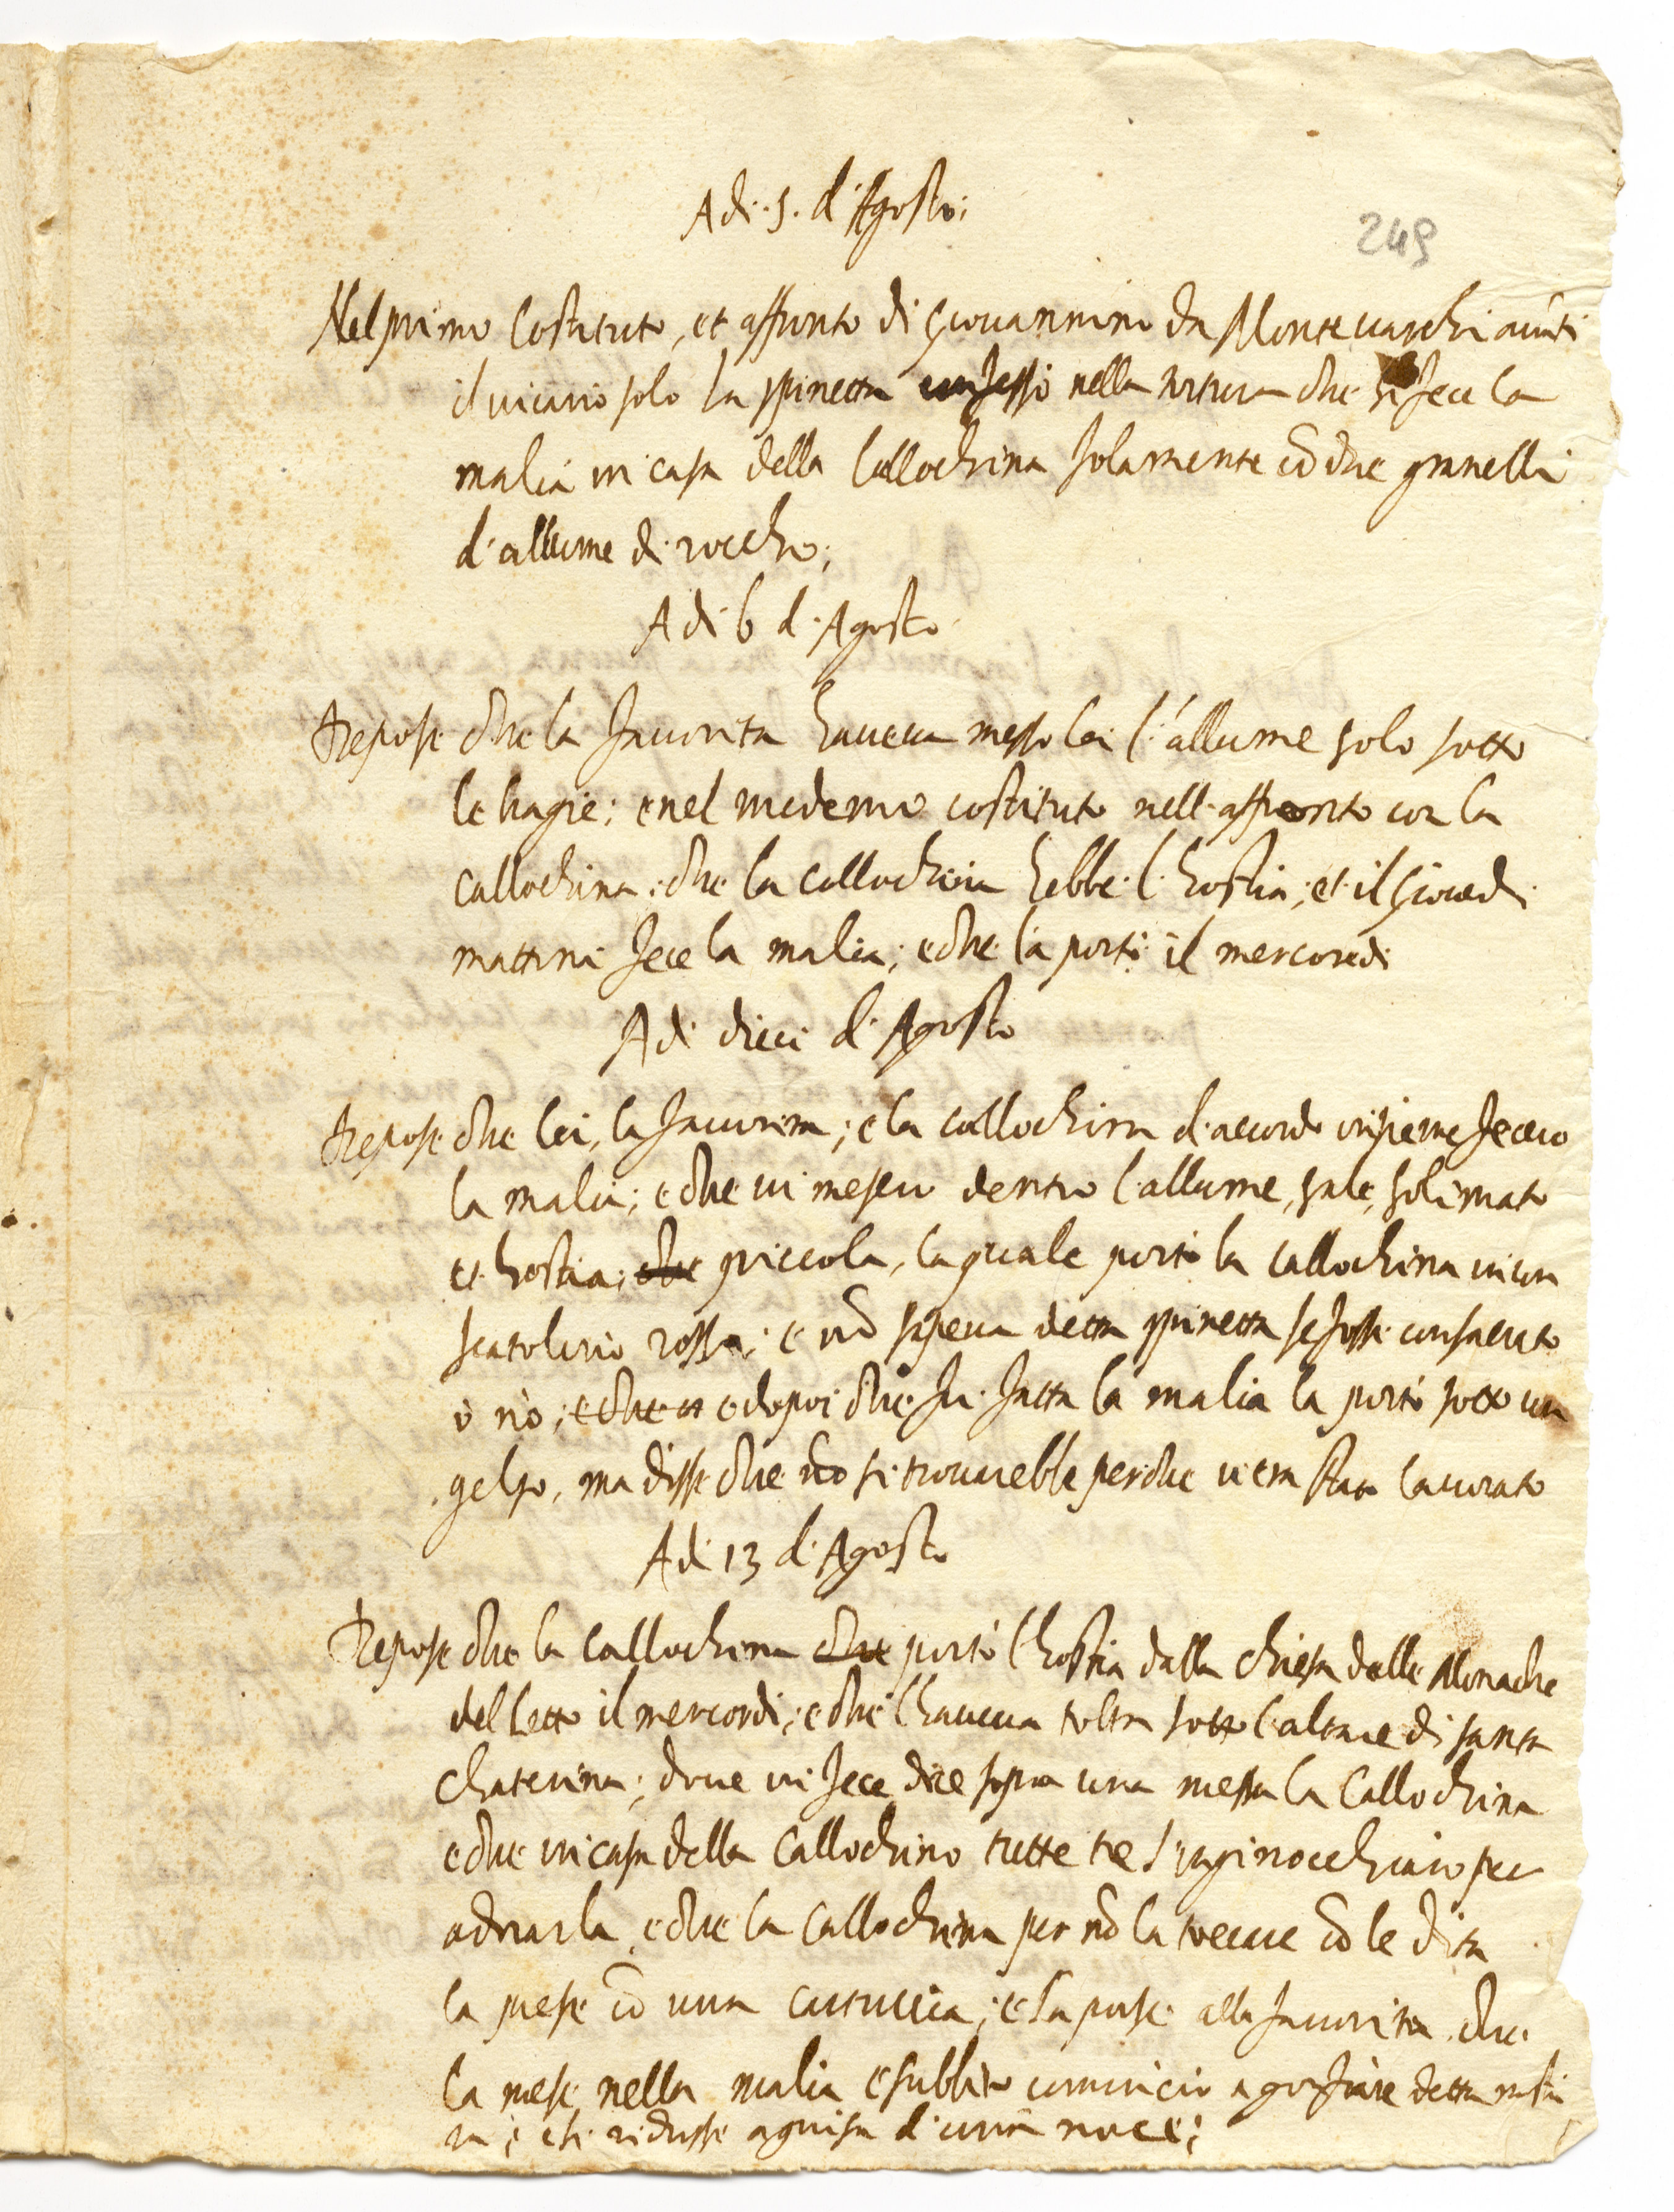 Adi 5. d'Agosto;
249
Nel primo Costituto, et affronto di Giovannino da Montevarchi avãti
il vicario solo la spinetta confessò nella tortura che si fece la
malia in casa della Callochina solamente cõ due granelli
d'allume di roccho;
Adi 6 d'Agosto
Depose che la favorita haveva messo lei l'allume solo sotto
le bragie; e nel medemo costituto nell'affronto con la
callochina, che la callochina hebbe l'hostia; et il Giovedi
mattina fece la malia; e che la portò il mercoredi
Adi dieci d'Agosto
Depose che lei, la favorita; e la callochina d'accordo insieme fecero
la malia; e che vi messero dentro l'allume, sale, solimato
et hostia; che piccola, la quale portò la callochina in un
scatolino rosso; e nõ sapeva detta spinetta se fosse consacrato
ò nò; e che et e dopoi che fu fatta la malia la portò sotto un
gelso, ma disse che nõ si trovarebbe perche v'era stato lavorato
Adi 13 d'Agosto
Depose che la callochina che portò l'hostia dalla chiesa delle Monache
del Latto il mercordi; e che l'haveva tolta sotto l'altare di santa
Chaterina; dove vi fece dire sopra una messa la Callochina
e che in casa della Callochino tutte tre s'inginocchiaro per
adorarla, e che la Callochina per nõ la toccare cõ le dita
la prese cõ una cartuccia; e la porse alla favorita che
la messe nella malia e subbito cominciò a gonfiare detta
e si ridusse a guisa d'una noce;